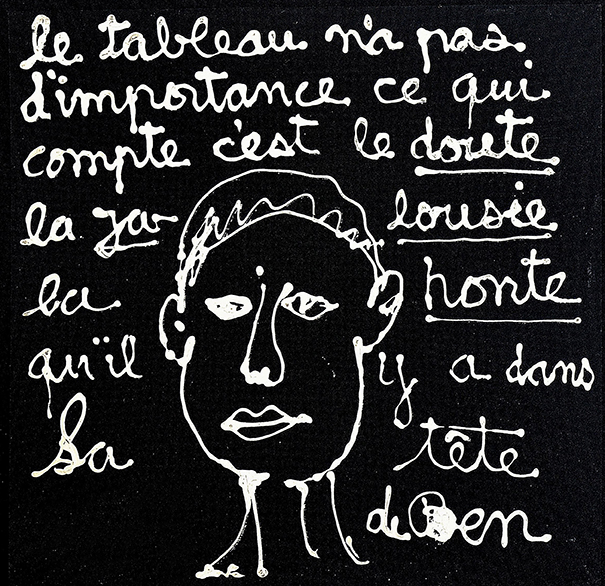 le tableau n'a pas
d'importance ce qui
compte c'est le doute
la ja- lousie
la honte
qu'il y a dans
la tête
de Ben